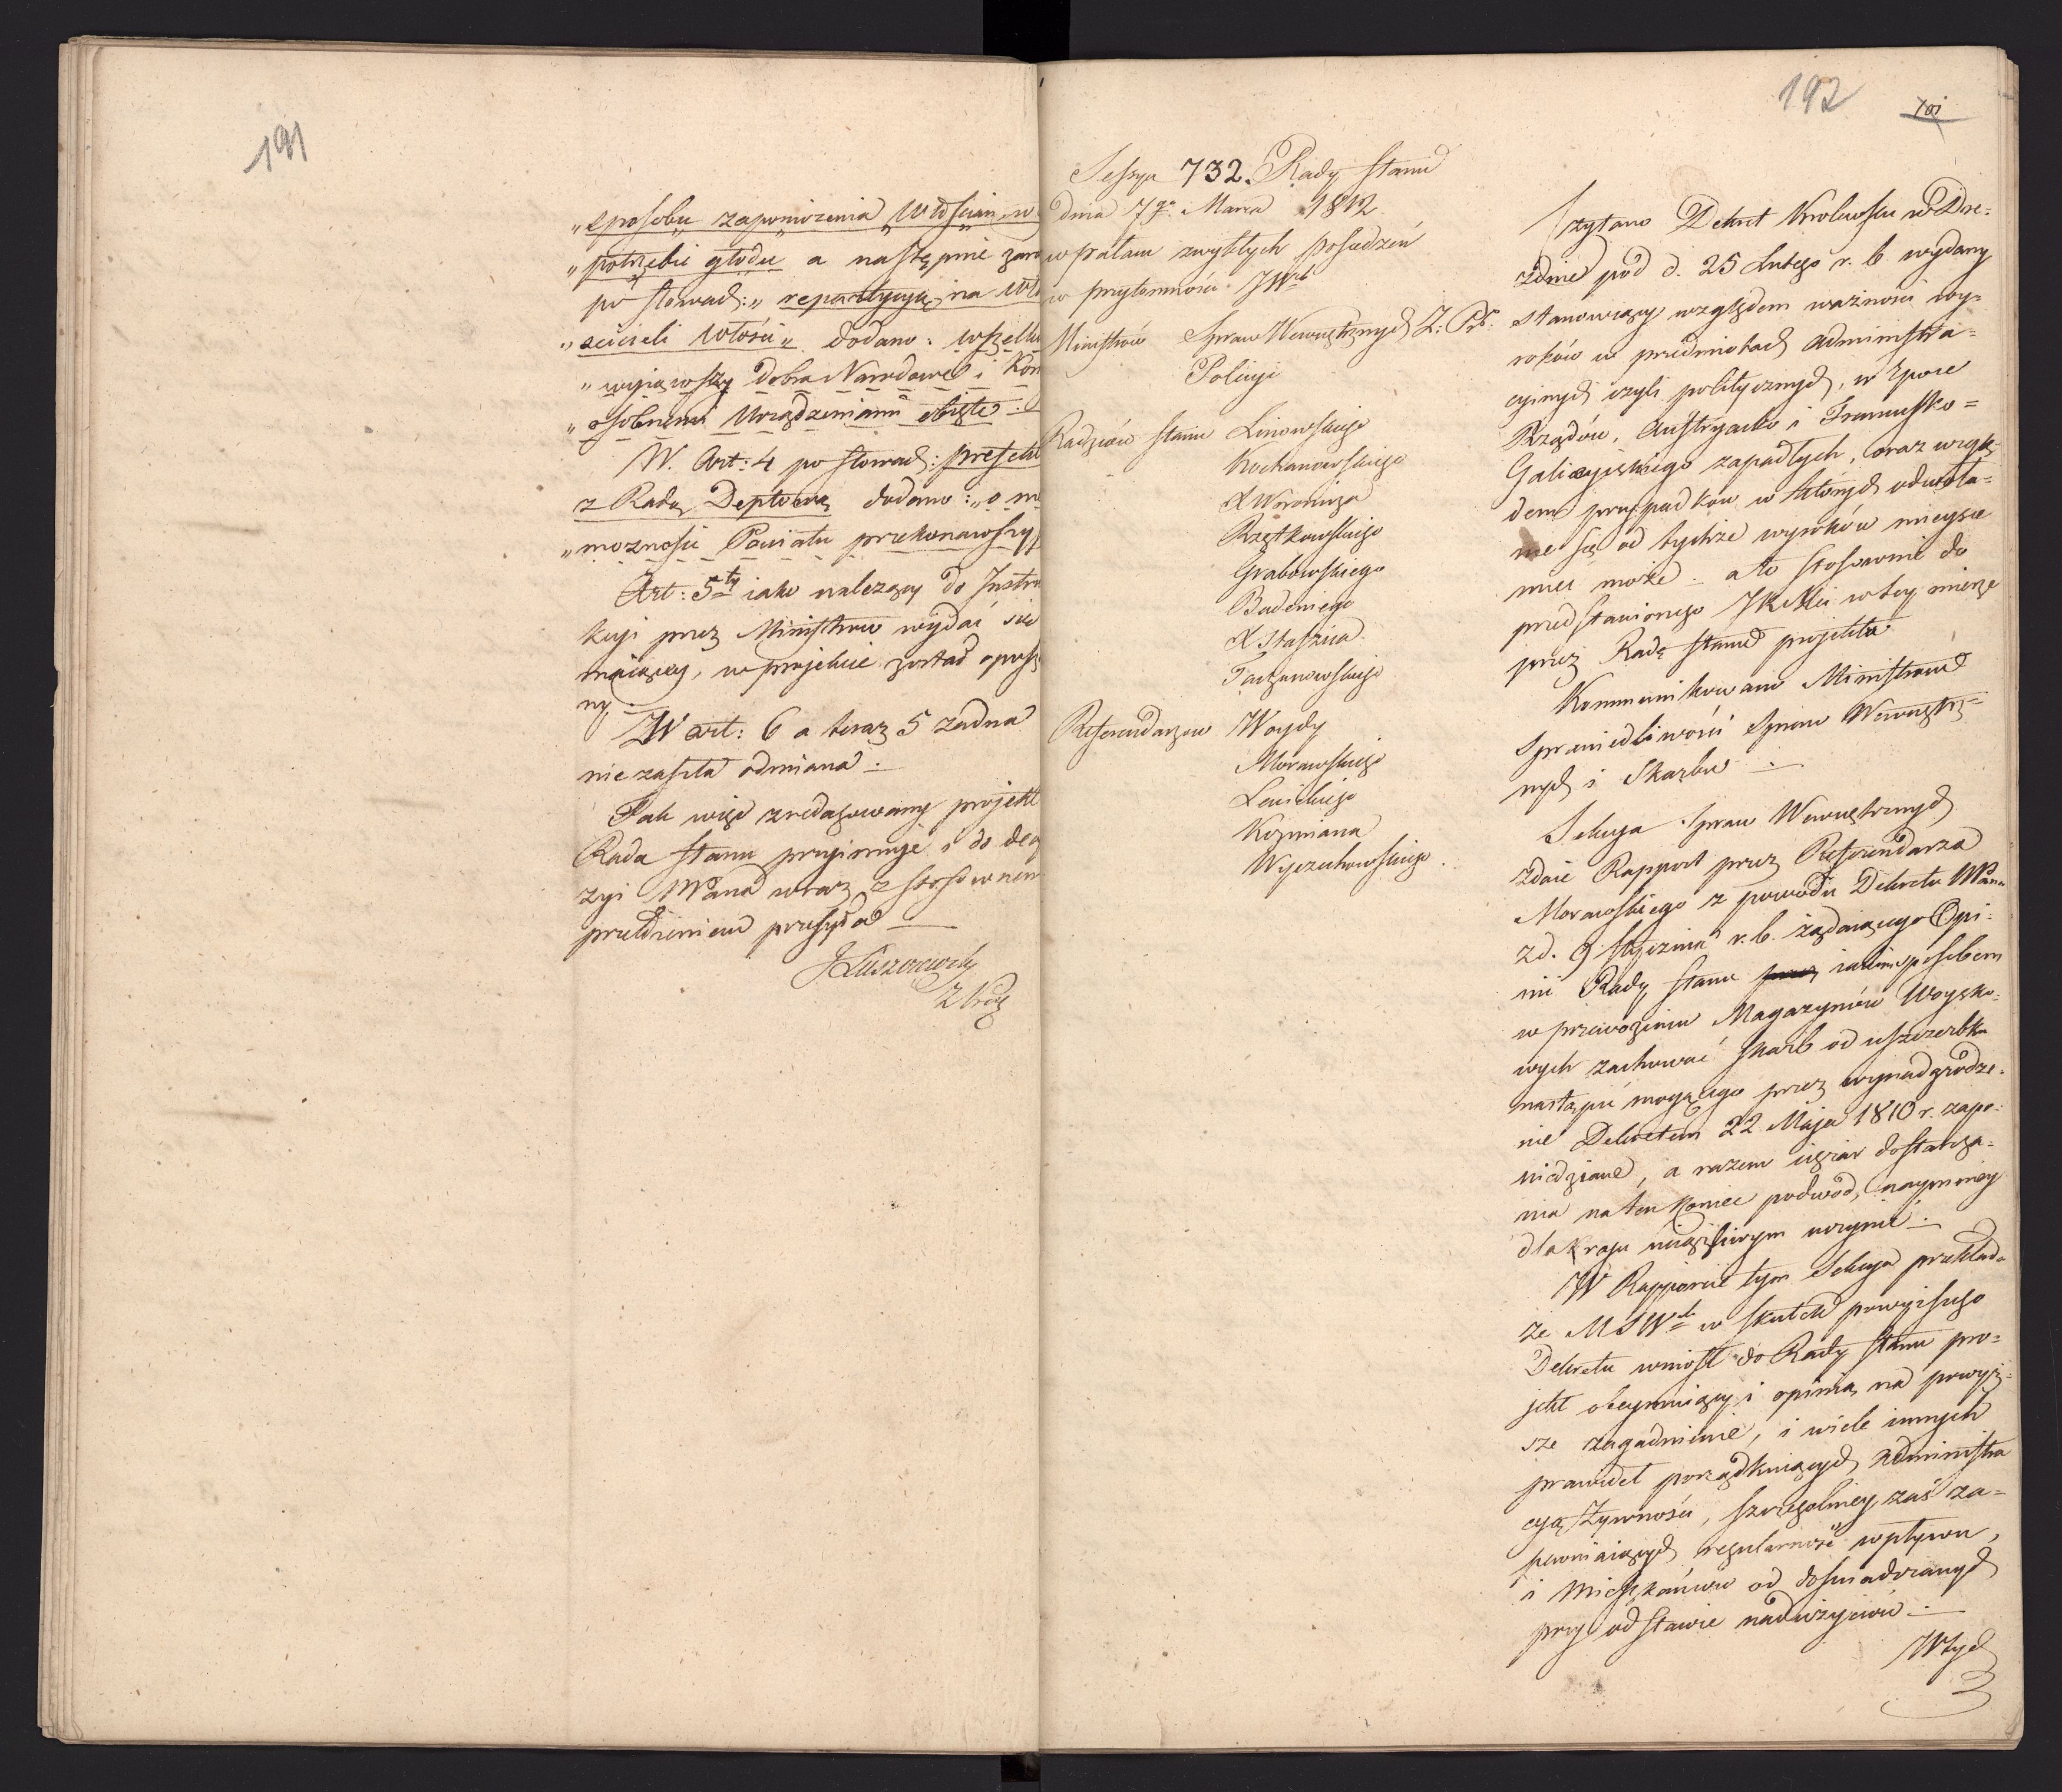 191
„sposobu zapomożenia Włościan w
„potrzebie głodu a następnie zam
po słowach: „repartycyą na wła
„scicieli Włości„ dodano: wszelkie
„wyiąwszy Dobra Narodowe i Kor
„osobnemi Urządzeniami obięte.
W. Art: 4 po słowach: Prefekt
z Radą Deptową dodano: „o mo
„możności Powiatu przekonawszy
Art: 5ty iako należący do Instru
kcyi przez Ministrów wydać się
maiącey, w projekcie został opusz
ny
W art: 6 a teraz 5 żadna
nie zaszła odmiana.
Tak więc zredagowany projekt
Rada Stanu przyimuje i do decy
zyi JKPana wraz z stosownem
przełożeniem przesyła
J Łuszczewski
192
101
Sessya 732. Rady Stanu
dnia 7go Marca 1812
w pałacu zwykłych posiedzeń
w przytomności JWch
Ministrów Spraw Wewnętrznych Z: Pr:
Policyi
Radzców Stanu Linowskiego
Kochanowskiego
X Woronicza
Rzętkowskiego
Grabowskiego
Badeniego
X Staszica
Taczanowskiego
Referendarzow Woydy
Morawskiego
Lewickiego
Koźmiana
Wyczechowskiego.
Czytano Dekret Królewski w Dre=
znie pod d. 25 Lutego r. b. wydany
stanowiący względem ważności wy=
roków w przedmiotach administra=
cyinych czyli politycznych, w Epoce
Rządów, Austryacko i Francusko=
Galicyjskiego zapadłych, oraz wzglę=
dem przypadków w których odwoła=
nie się od tychże wyroków mieysce
mieć może. a to stosownie do
przedstawionego JKMci w tey mierze
przez Radę Stanu projektu
Kommunikowano Ministrowi
Sprawiedliwości Spraw Wewnętrz=
nych i Skarbu.
Sekcya Spraw Wewnętrznych
zdaie Rapport przez Referendarza
Morawskiego z powodu Dekretu JKPana
z d. 9 Stycznia r. b. żądaiącego Opi=
nii Rady Stanu iakim sposobem
w przewożeniu Magazynów Woysko=
wych zachować Skarb od uszczerbku
nastąpić mogącego przez wynadgrodze=
nie Dekretem 22 Maja 1810 r. zapo=
wiedziane, a razem ciężar dostarcza=
nia na ten koniec podwod, naymniey
dla kraju uciążliwym uczynić.
W Rapporcie tym Sekcya przekłada
że MSWch w skutek powyższego
Dekretu wniosł do Rady Stanu pro=
jekt obeymuiący i opinią na powyż=
sze zagadnienie, i wiele innych
prawideł porządkuiących Administra
cyą Żywności, szczegolniey zaś za=
pewniaiących regularność wpływu,
i Mieszkańców od doświadczanych
przy odstawie nadużyciów.
W tych